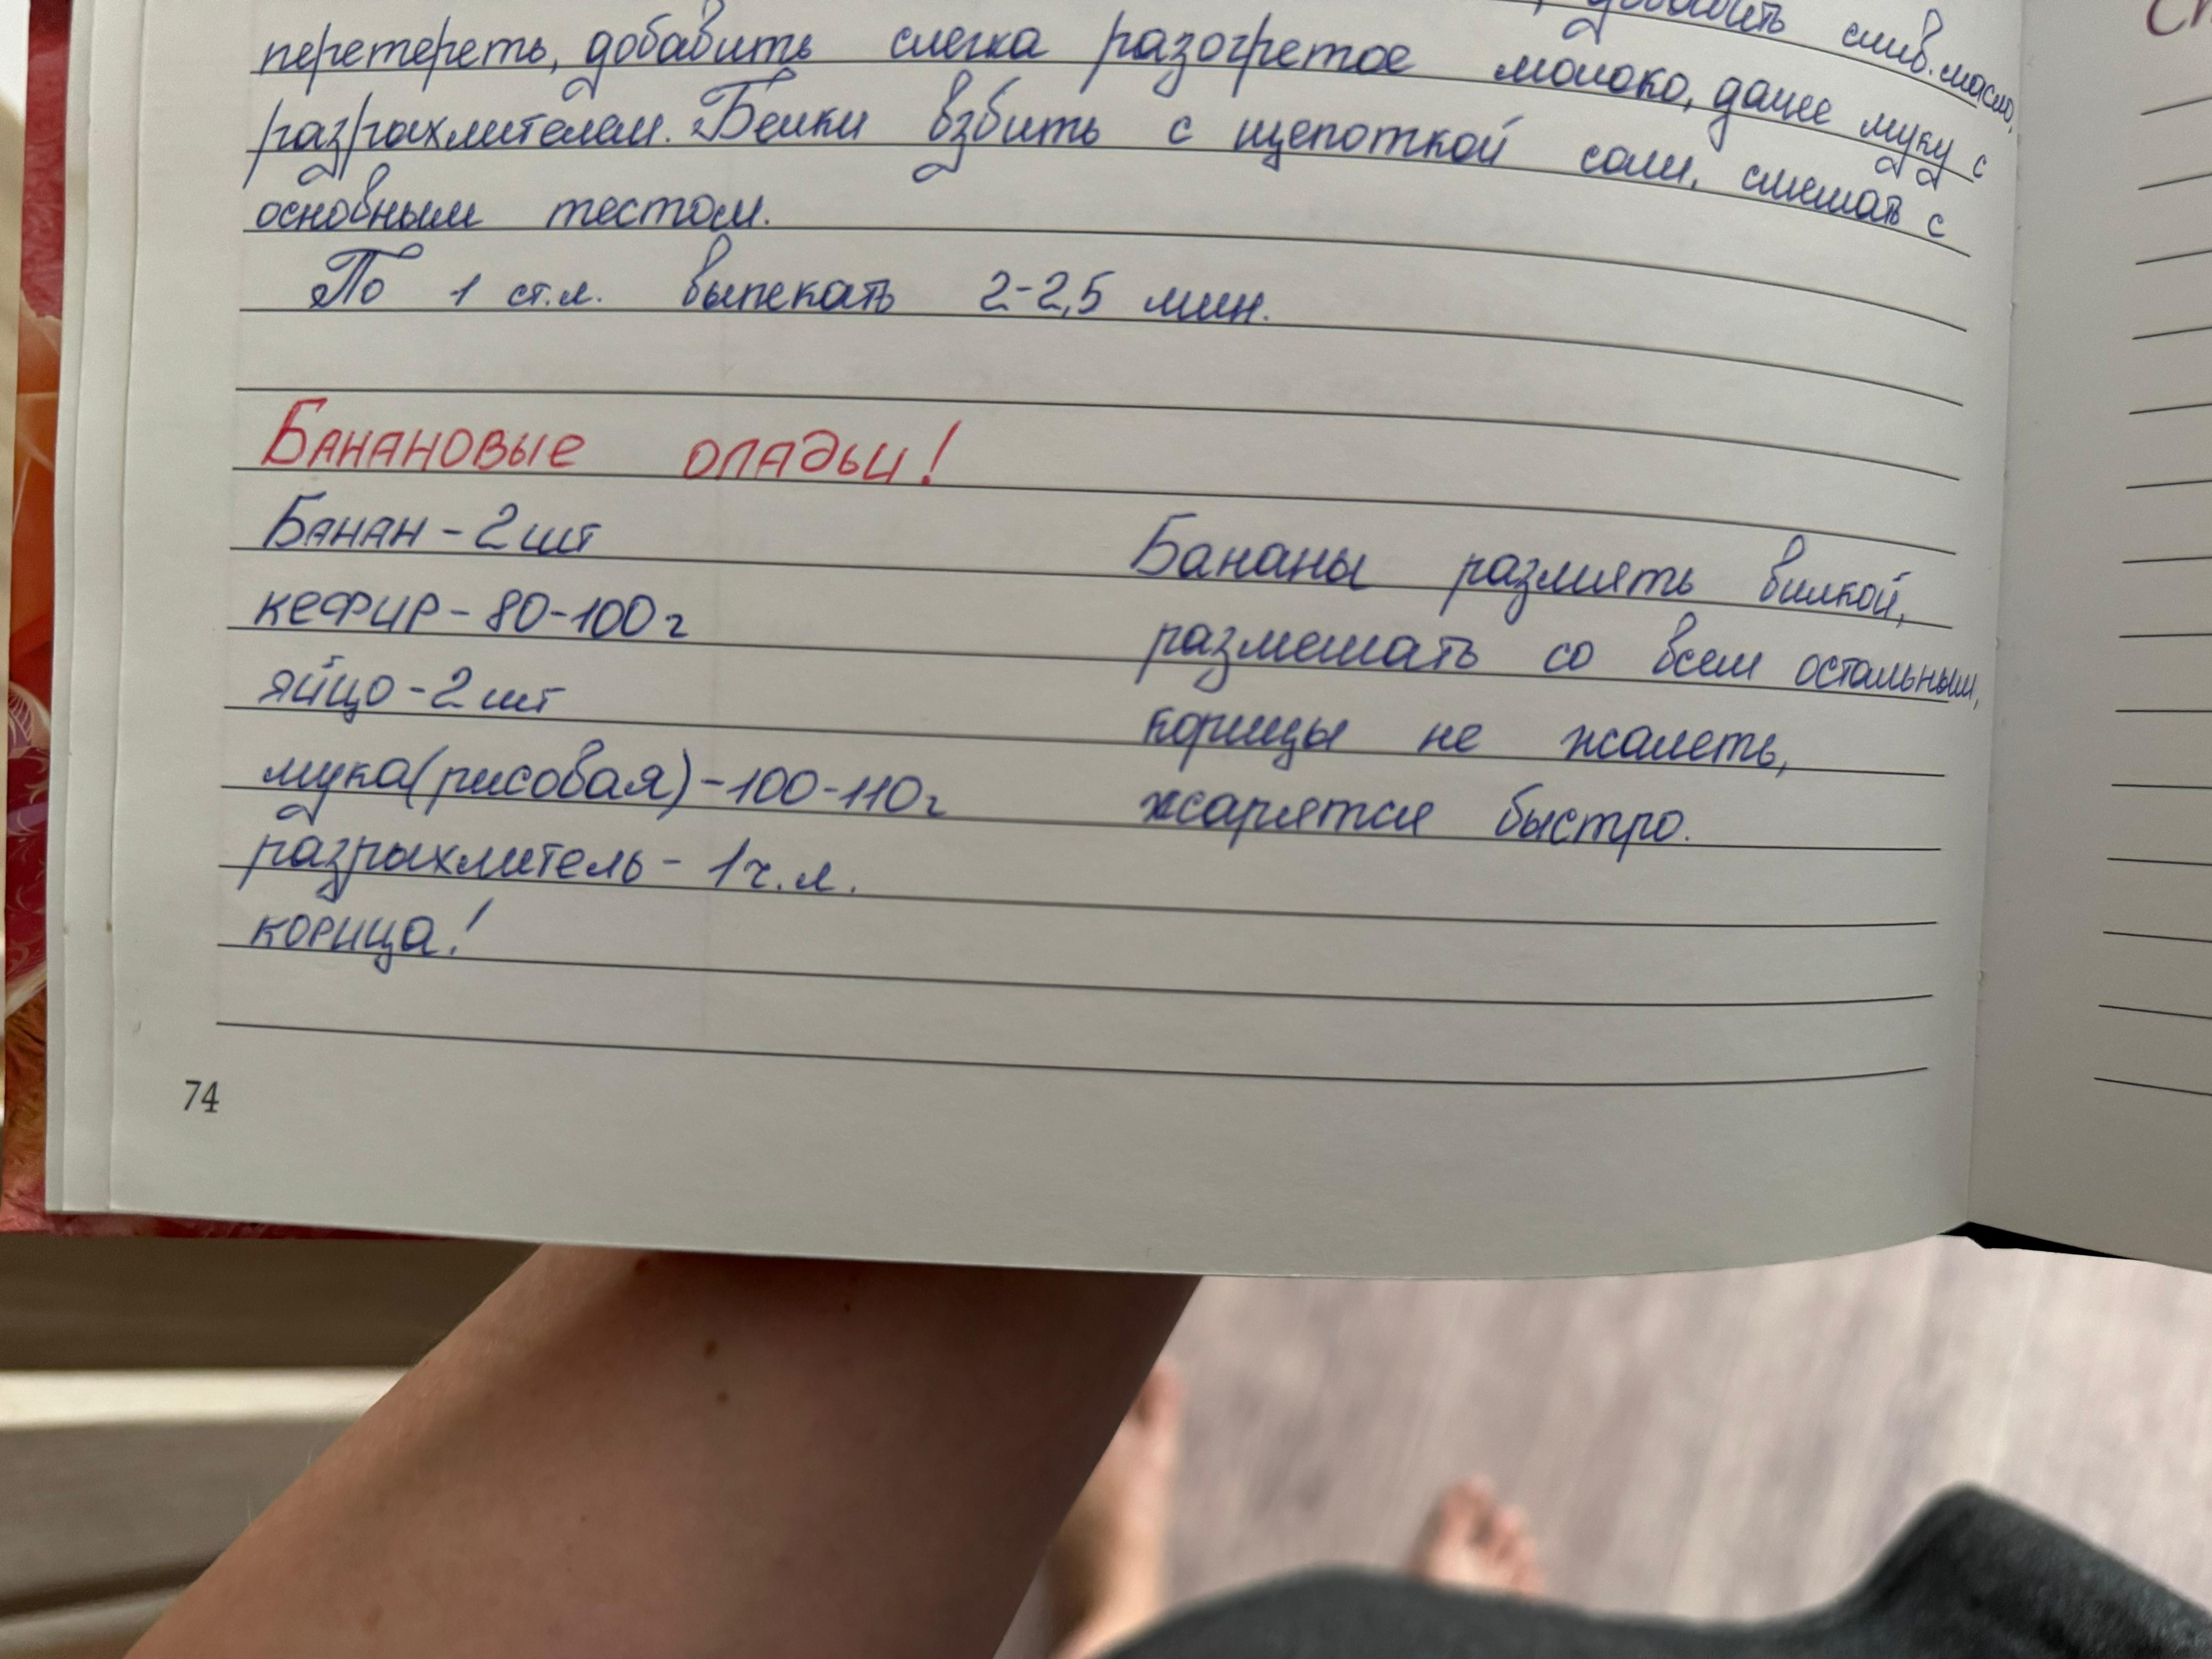 добавить слив. масло,
перетереть, добавить слегка разогретое молоко, далее муку с
разрыхлителем. Белки взбить с щепоткой соли, смешать с
основным тестом.
По 1 ст.л. выпекать 2-2,5 мин.
Банановые оладьи!
Банан - 2 шт
кефир - 80-100 г
яйцо - 2 шт
мука (рисовая) - 100-110 г
разрыхлитель - 1 ч.л.
корица!
Бананы размять вилкой,
размешать со всем остальным,
корицы не жалеть,
жарятся быстро.
74